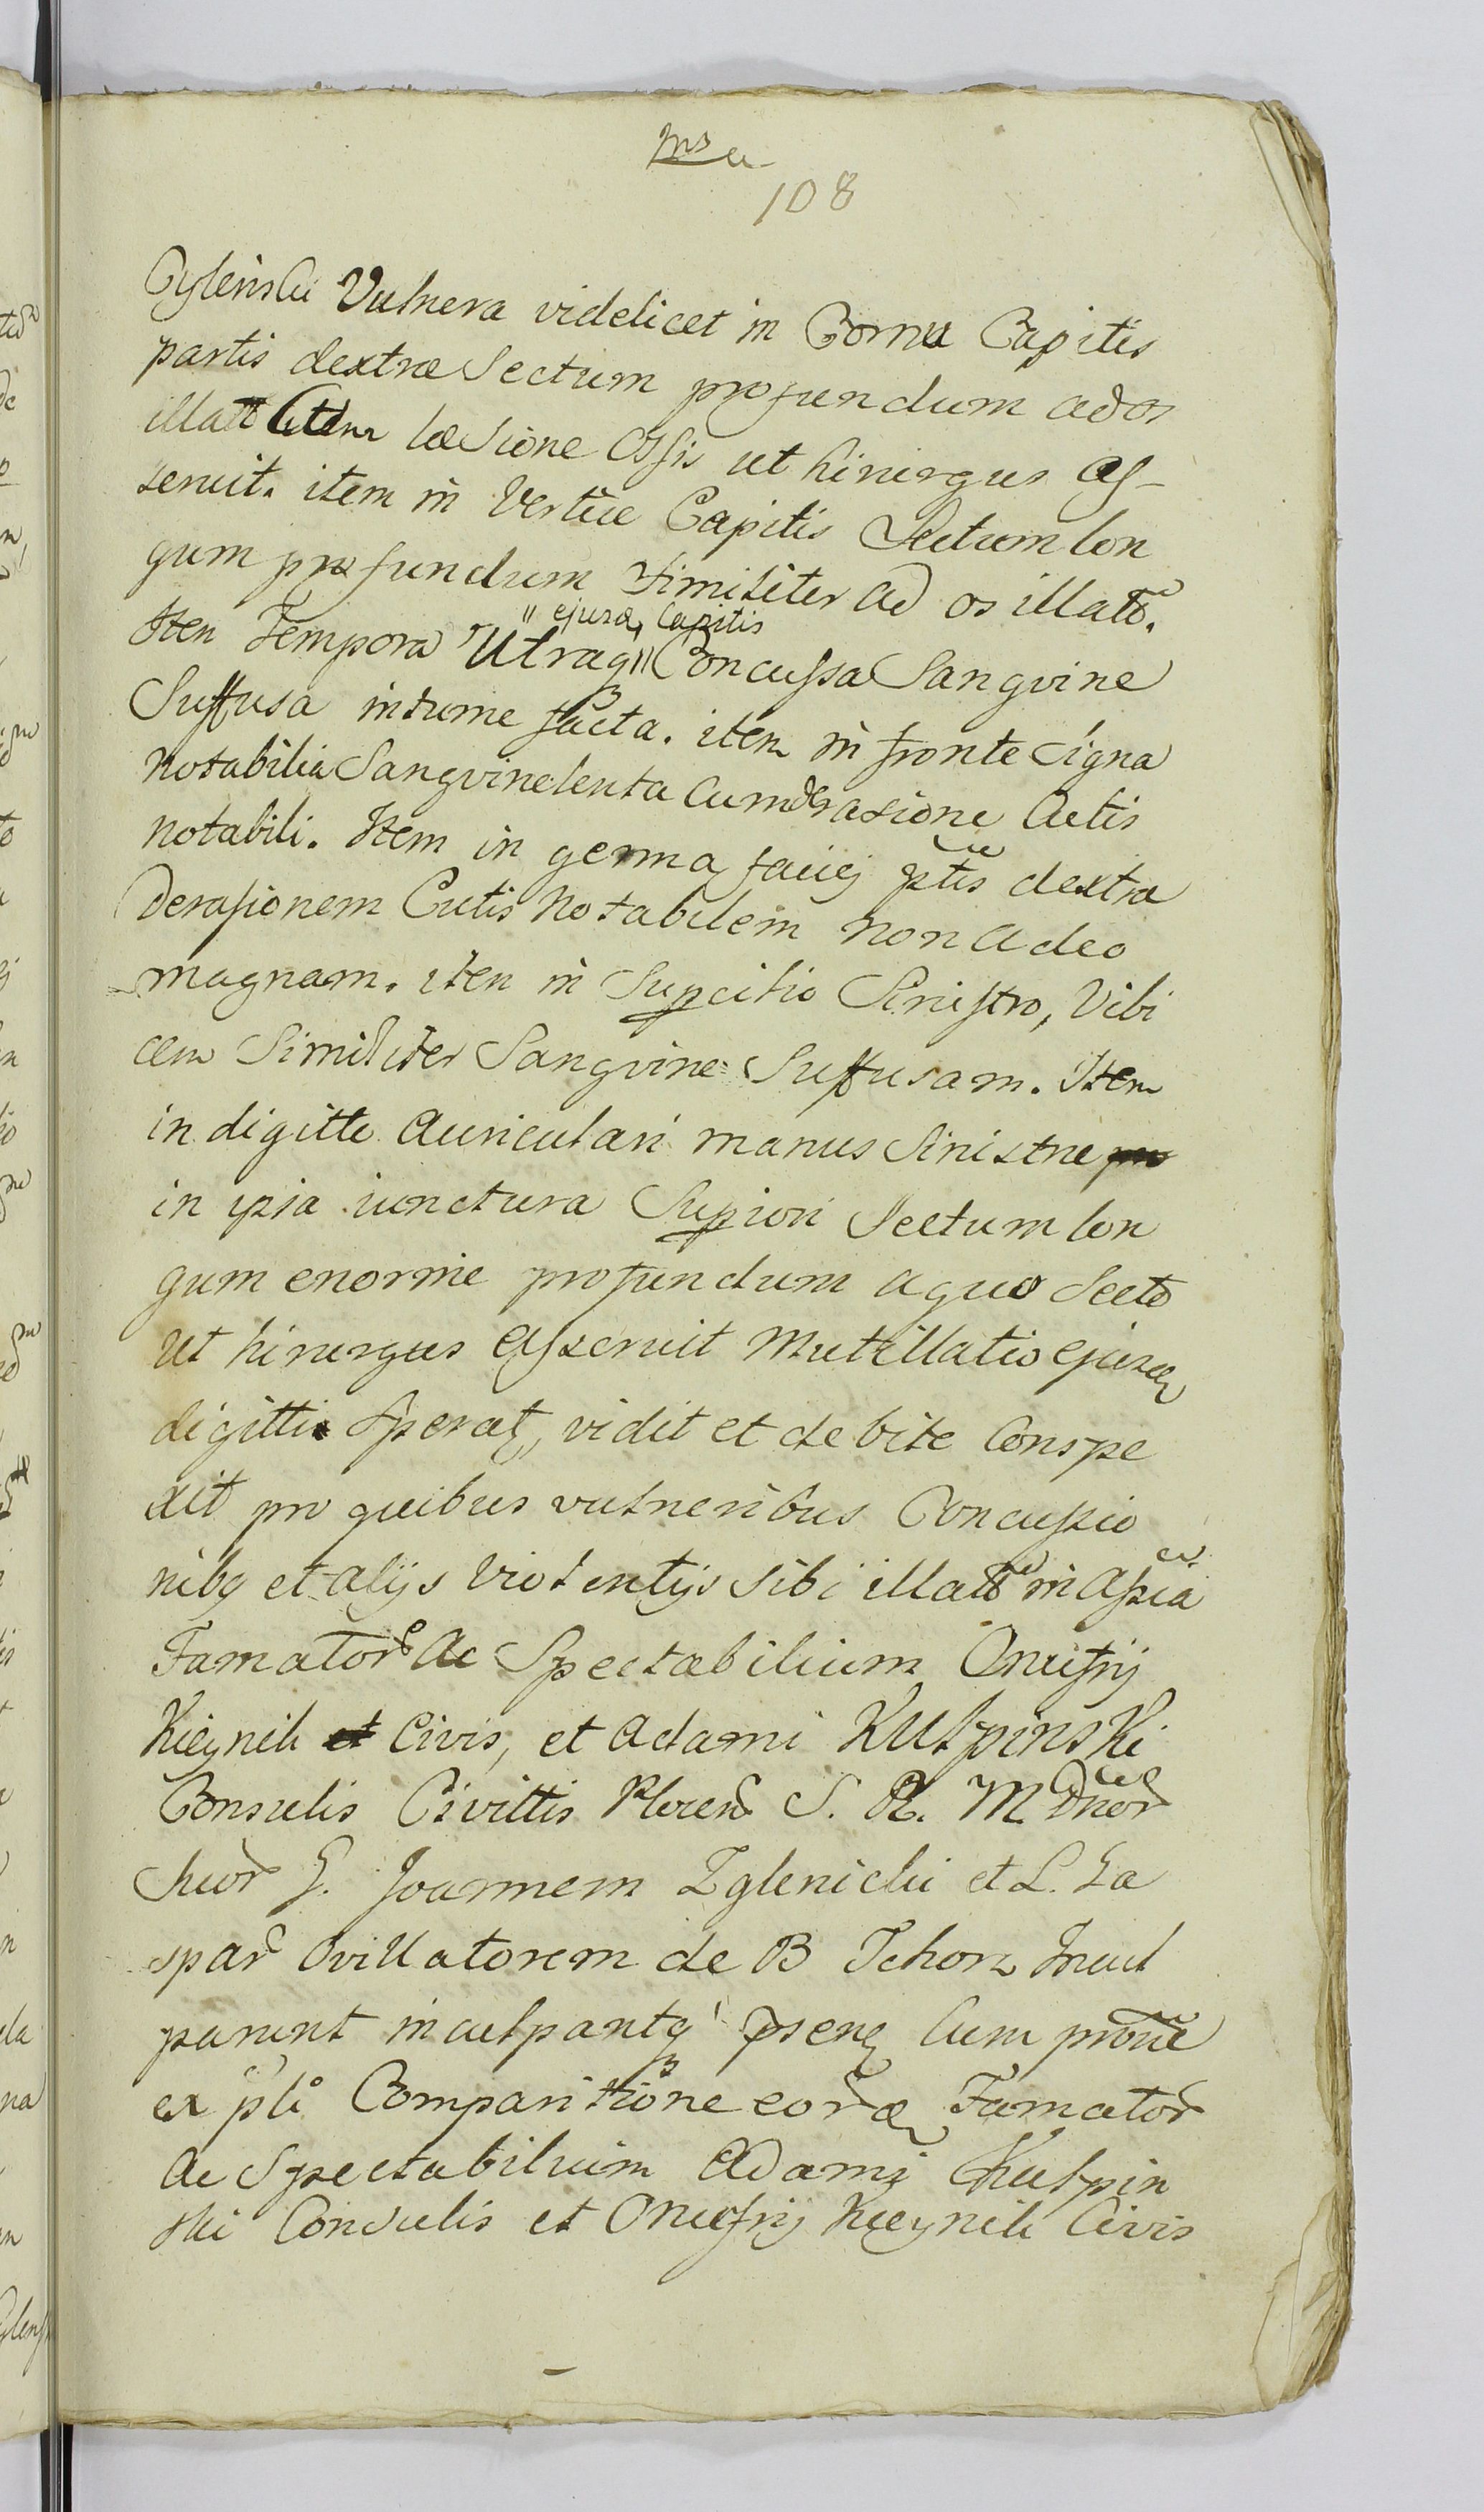 108
Cylinski Vulnera videlicet in Cornu Capitis
partis dextræ Sectum profundum ad os
illatt Cum læsione Ossis ut hirurgus as-
seruit. item in Vertice Capitis Sectum lon
gum profundum similiter ad os illatt.
Item Tempora Utraq
" ejusd Capitis
" Concussa Sangvine
Suffusa intume facta. item in fronte signa
notabilia Sangvinelenta cum derasione Cutis
notabili. Item in gemma faciej ptis dextra
Derasionem Cutis notabilem non adeo
magnam. item in Supcilio Sinistro, Vibi
cem Similiter Sangvine Suffusam. Item
in digitto auriculari manus sinistræ
in ipsa iunctura Supiori Sectum lon
gum enorme profundum a quo Secto
ut hirurgus asseruit Mutillatio ejusd
digitti Sperat, vidit et debite Conspe
xit pro quibus vulneribus Concussio
nibq et alijs violentijs sibi illatt in assia
Famator ac Spectabilium Onufrij
Kieynik et Civis, et Adami Kulpinski
Consulis Civittis Plocen S. R. M Dnor
suor G. Joannem Zglenicki et L. Ga
spar Ovillatorem de B Tchorz Incul
parunt inculpantq psens Cum prone
ex pti Comparitione eord Famator
ac Spectabilium Adami Kulpin
ski Consulis et Onufrij Kieynik Civis